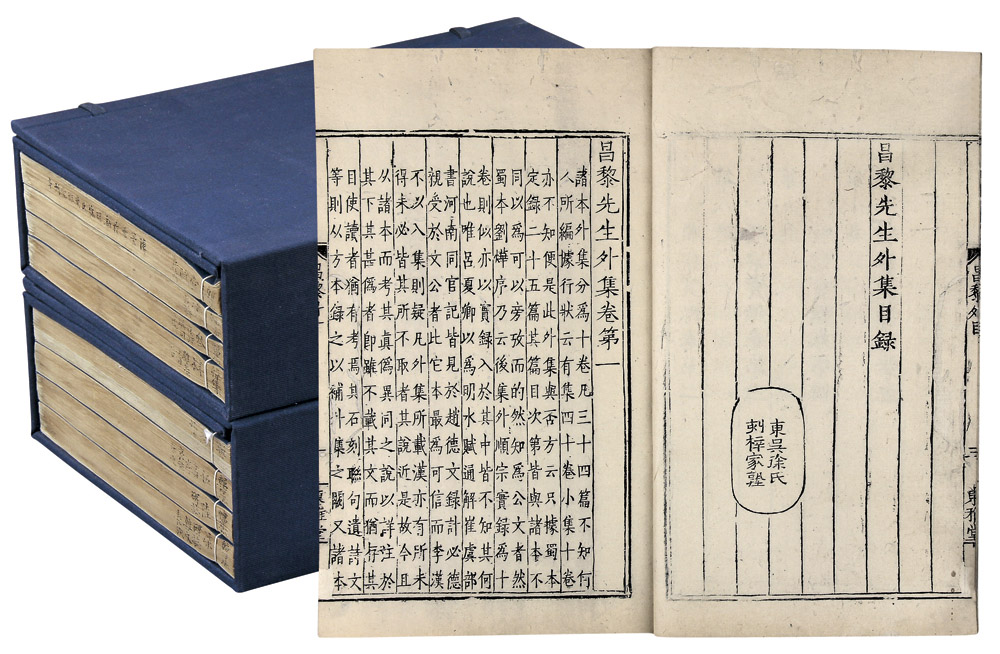 昌黎先生外集目録
東吳徐氏
刻梓家塾
昌黎外目
東雅堂
昌黎先生外集卷第一
諸本外集分爲十卷凡三十四篇不知何
人所編據行狀云有集四十卷小集十卷
亦不知便是此外集與否方云只據蜀本
定録二十五篇其篇目次第皆與諸本不
同以爲可以旁攷而的然知爲公文者然
蜀本劉燁序乃云後集外順宗實録爲十
卷則似亦以實録入於其中皆不知其何
說也唯呂夏卿以爲明水賦通解崔虞部
書河南同官記皆見於趙德文録計必德
親受於文公者此它本最爲可信而李漢
不以入集則疑凡外集所載漢亦有所未
得未必皆其所不取者其說近是故今且
從諸本而考其真僞異同之說以詳注於
其下其甚僞者即雖不載其文而猶存其
目使讀者猶有考焉其石刻聯句遺詩文
等則从方本録之以補外集之闕又諸本